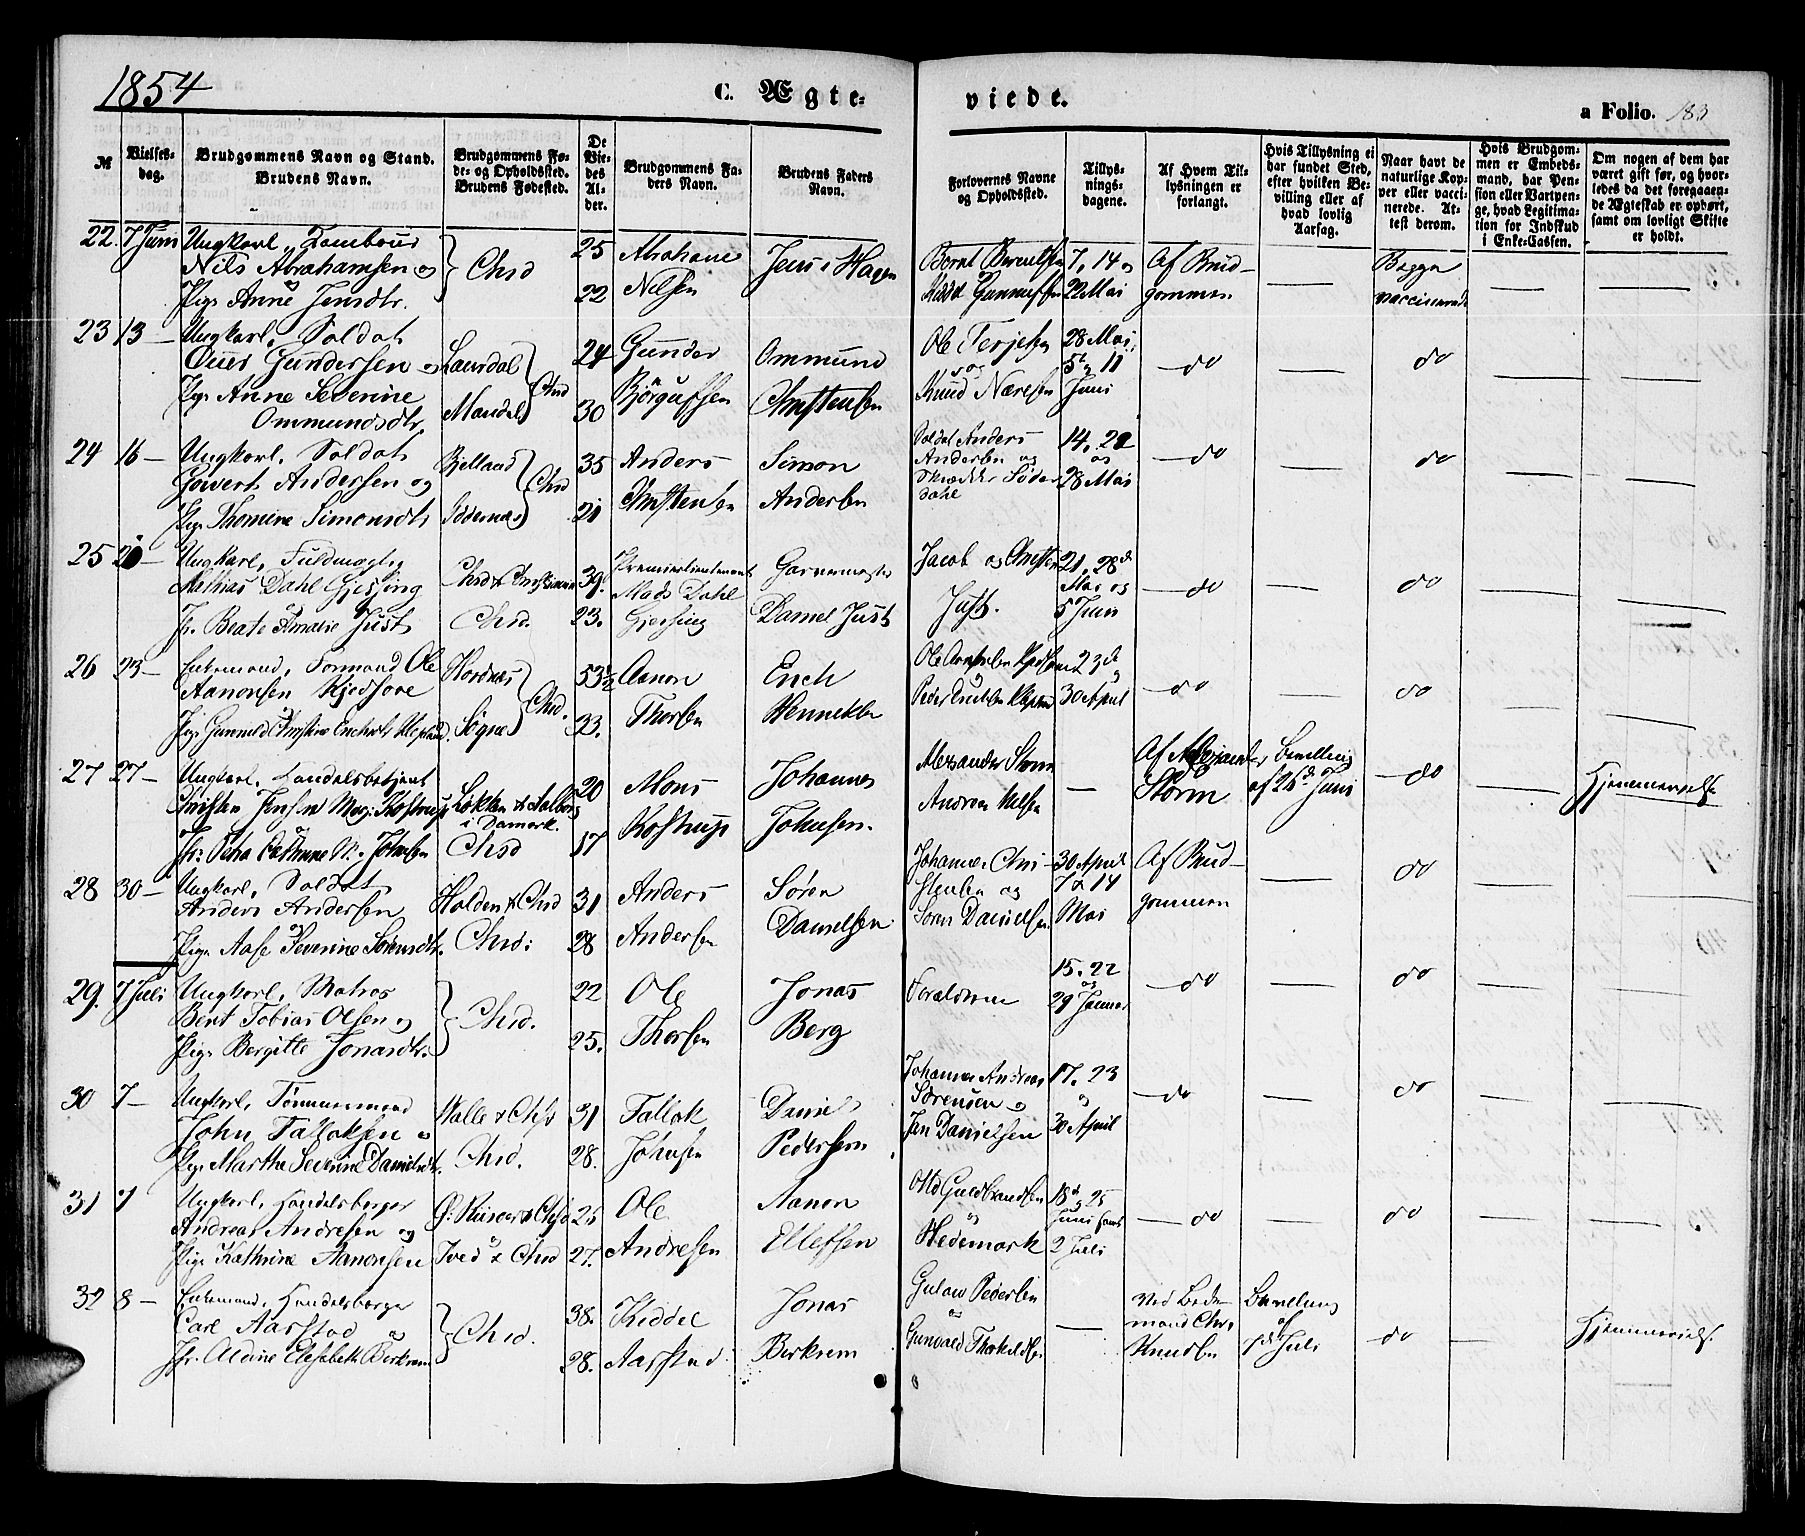 1854
C. Ægteviede.
a Folio. 183
№ | Vielsesdag. | Brudgommens Navn og Stand. Brudens Navn. | Brudgommens Føde- og Opholdsted. Brudens Fødested. | De Viedes Alder. | Brudgommens Faders Navn. | Brudens Faders Navn. | Forlovernes Navne og Opholdssted. | Tillysningsdagene. | Af Hvem Tillysningen er forlangt. | Hvis Tillysning ei har fundet Sted, efter hvilken Bevilling eller af hvad lovlig Aarsag. | Naar havt de naturlige Kopper eller vaccinerede. Attest derom. | Hvis Brudgommen er Embedsmand, har Pension eller Vartpenge, hvad Legitimation for Indskud i Enke-Cassen. | Om nogen af dem har været gift før, og hvorledes da det foregaaende Ægteskab er ophørt, samt om lovligt Skifte er holdt.
22. 7 Juni Ungkarl, Tambour | 25 | Abraham | Jens Hagen | 7, 14 og | Af Brud- | Begge
Nils Abrahamsen og | Chsd | Nilsen | 22 Mai | gommen | vaccinerede
Pige Anne Jensdtr. | 22
23 13 — Ungkarl, Soldat | 24 | Gunder | Ommund | Ole Terjesen | 28 Mai,
Gundersen og | Chsd | og | 5te og 11 | do | do
Pige Anne Severine | Mandal | 30 | Christensen | Knud | Juni
Ommundsdtr.
24 16 — Ungkarl, Soldat | Bjelland | 35 | Anders | Simon | Soldat Anders | 14, 21
Govert Andersen og | Chsd | Andersen og | og | do | do
Pige Thomine Simonsdtr | Oddernæs | 21 | Christensen | Andersen | 28 Mai
25 20 — Ungkarl, Fuldmægtig | Premierlieutenant | Garvermester | Jacob og Christen | 21, 28de
Mathias Dahl Gjessing | 39. | Mads Dahl | Mai og | do | do
Jfr. Beate Amalie Just | Chsd. | 23. | Gjessing | Daniel Just | Just. | 5 Juni
26 23 — Enkemand, Formand Ole | 53½ | Aanon | Erich | 23de
Aanonsen Kjedsore | Chsd. | Peder | 30 April | do | do
Pige Gunnild | Søgne | 33. | Thorsen
27 27 — Ungkarl, Handelsbetjent | 20 | Mons | Johannes | Alexander Storm | Af Alexander | Bevilling
Christen Jensen | Løkken & Aalborg i Danmark. | — | Storm | af 26de Juni | do | Hjemmevielse
Jfr. Petra Cathrine M. Johnsen | Chsd | 17 | Kostrup | Johnsen. | Andreas Nielsen
28 30 — Ungkarl, Soldat | 31 | Anders | Søren | Johannes Chri- | 30 April | Af Brud- | do
Anders Andersen | Holden & Chsd | stensen og | 7 & 14 | gommen
Pige Aase Severine Sørensdtr. | Chsd: | 28 | Andersen | Danielsen | Søren Danielsen | Mai
29. 7 Juli Ungkarl, Matros | 22 | Ole | Jonas | 15, 22
Bent Tobias Olsen og | Chsd. | Forældrene | og | do | do
Pige Bergitte Jonasdtr. | 25. | Thorsen | Berg | 29 Januar
30 7 — Ungkarl, Tømmermand | Johannes Andreas | 17, 23
John Tallaksen og | Walle & Chsd | 31 | Tallak | Daniel | Sørensen og | og | do | do
Pige Marthe Severine Danielsdtr. | Chsd. | 28. | Johnsen | Pedersen | Jen Danielsen | 30 April
31 7 Ungkarl, Handelsborger | Ole | Aanon | Guldbrandsen | 18de og 25
Andreas Andresen og | Ø: Riisøer & Chsd | 25 | og | Juni samt | do | do
Pige Kathrine Aanonsen | Tved & Chsd | 27. | Andresen | Ellefsen | Hedemark | 2 Juli
32 8 — Enkemand, Handelsborger | 38. | Kiddel | Jonas | Gustav Pedersen | Ved Bede- | Bevilling
Carl Aarstad og | Chsd. | og | — | mand Chr. | af | do | Hjemmevielse
Jfr. Aldine Elisabeth Berkrem | 28. | Aarstad | Berkrem | Gunvald Thorkildsen | Knudsen | 7de Juli